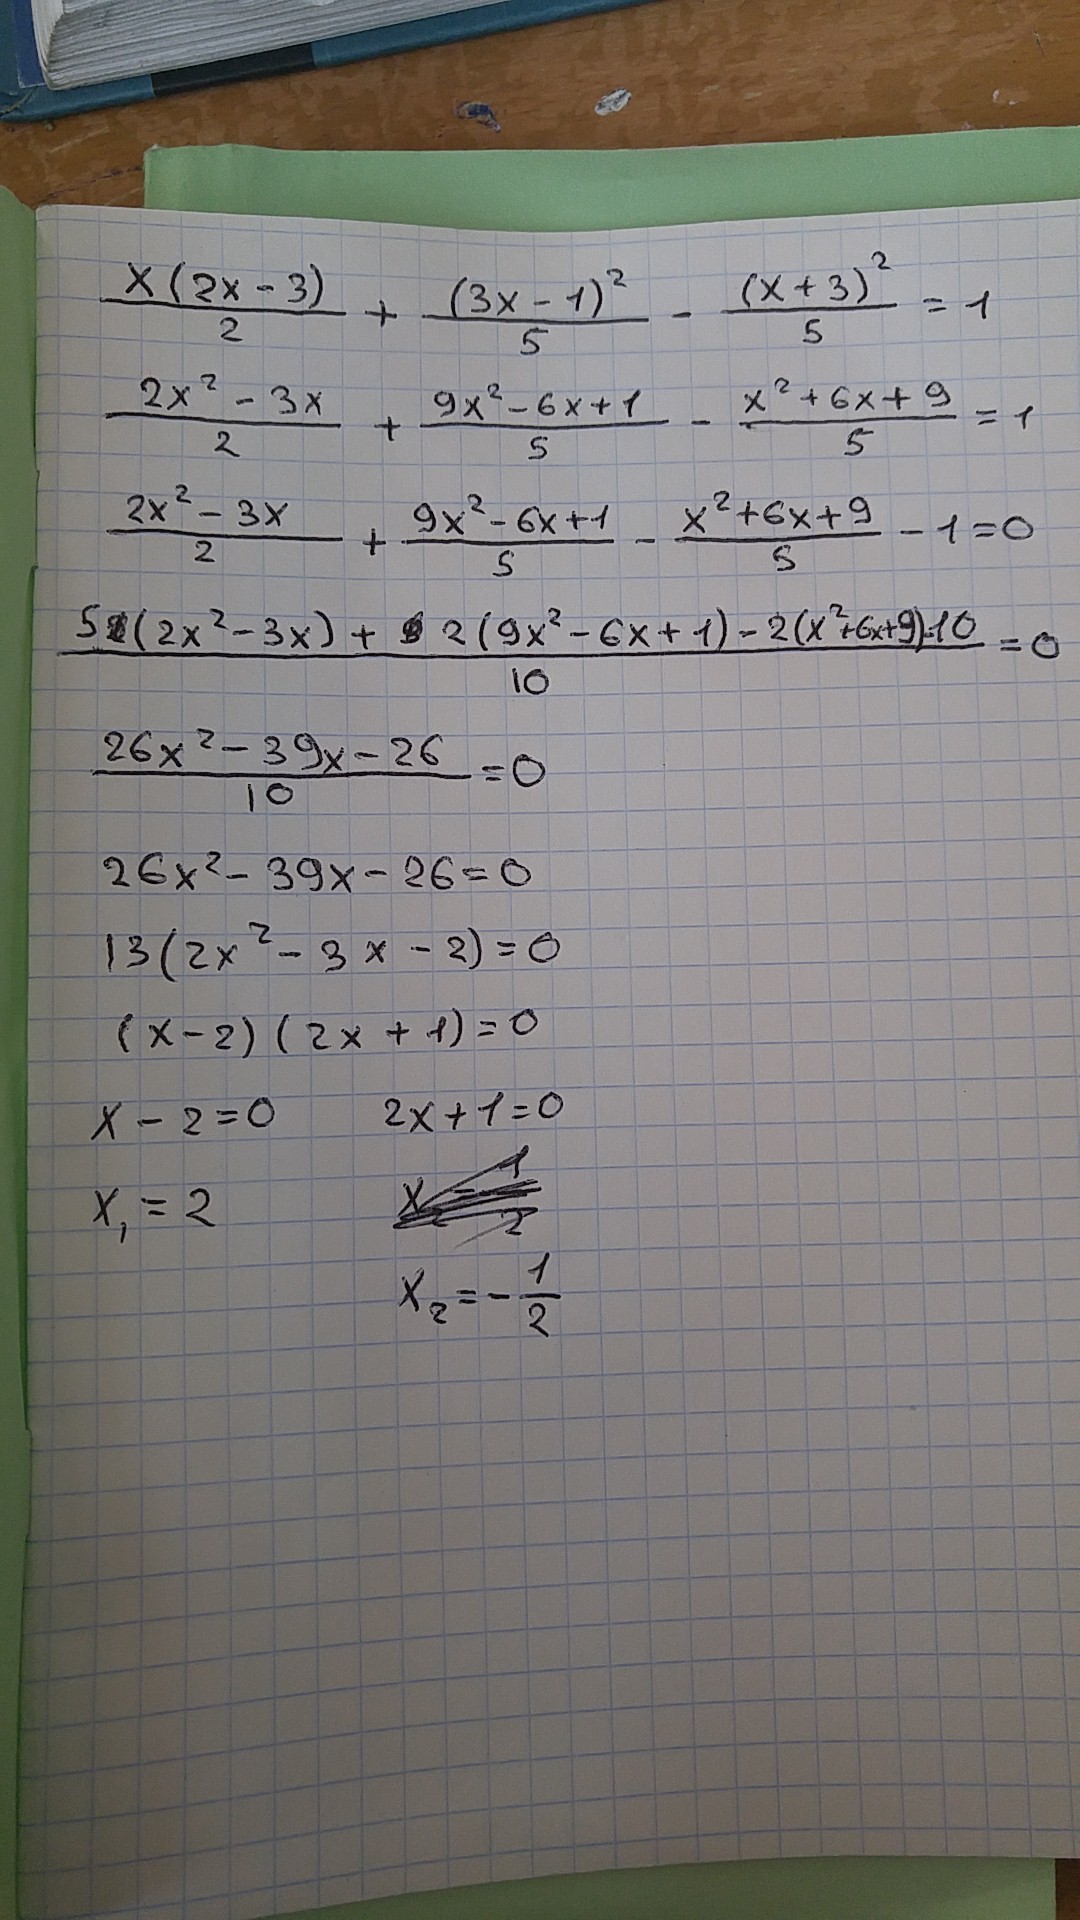 x(2x-3)/2 + (3x-1)²/5 - (x+3)²/5 = 1
2x²-3x/2 + 9x²-6x+1/5 - x²+6x+9/5 = 1
2x²-3x/2 + 9x²-6x+1/5 - x²+6x+9/5 - 1=0
5(2x²-3x) + 2(9x²-6x+1) - 2(x²+6x+9)-10/10 = 0
26x²-39x-26/10 = 0
26x²-39x-26=0
13(2x²-3x-2)=0
(x-2)(2x+1)=0
x-2=0 2x+1=0
x₁=2
x₂=-1/2